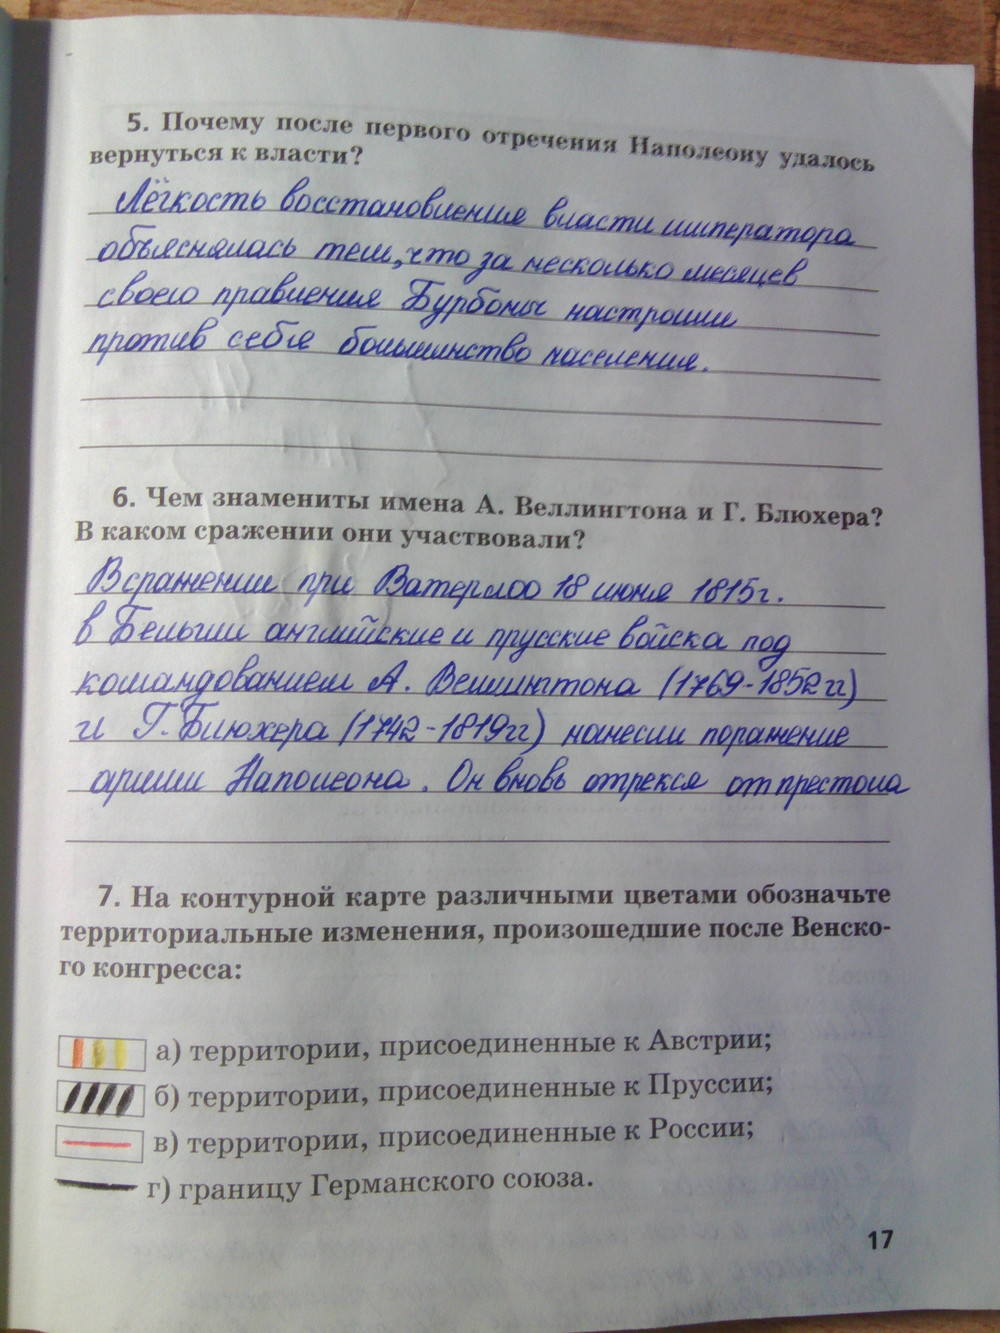 5. Почему после первого отречения Наполеону удалось
вернуться к власти?
Лёгкость восстановления власти императора
объяснялась тем, что за несколько месяцев
своего правления Бурбоны настроили
против себя большинство населения.
6. Чем знамениты имена А. Веллингтона и Г. Блюхера?
В каком сражении они участвовали?
В сражении при Ватерлоо 18 июня 1815г.
в Бельгии английские и прусские войска под
командованием А. Веллингтона (1769-1852гг)
и Г. Блюхера (1742-1819гг) нанесли поражение
армии Наполеона. Он вновь отрекся от престола
7. На контурной карте различными цветами обозначьте
территориальные изменения, произошедшие после Венско-
го конгресса:
а) территории, присоединенные к Австрии;
б) территории, присоединенные к Пруссии;
в) территории, присоединенные к России;
г) границу Германского союза.
17